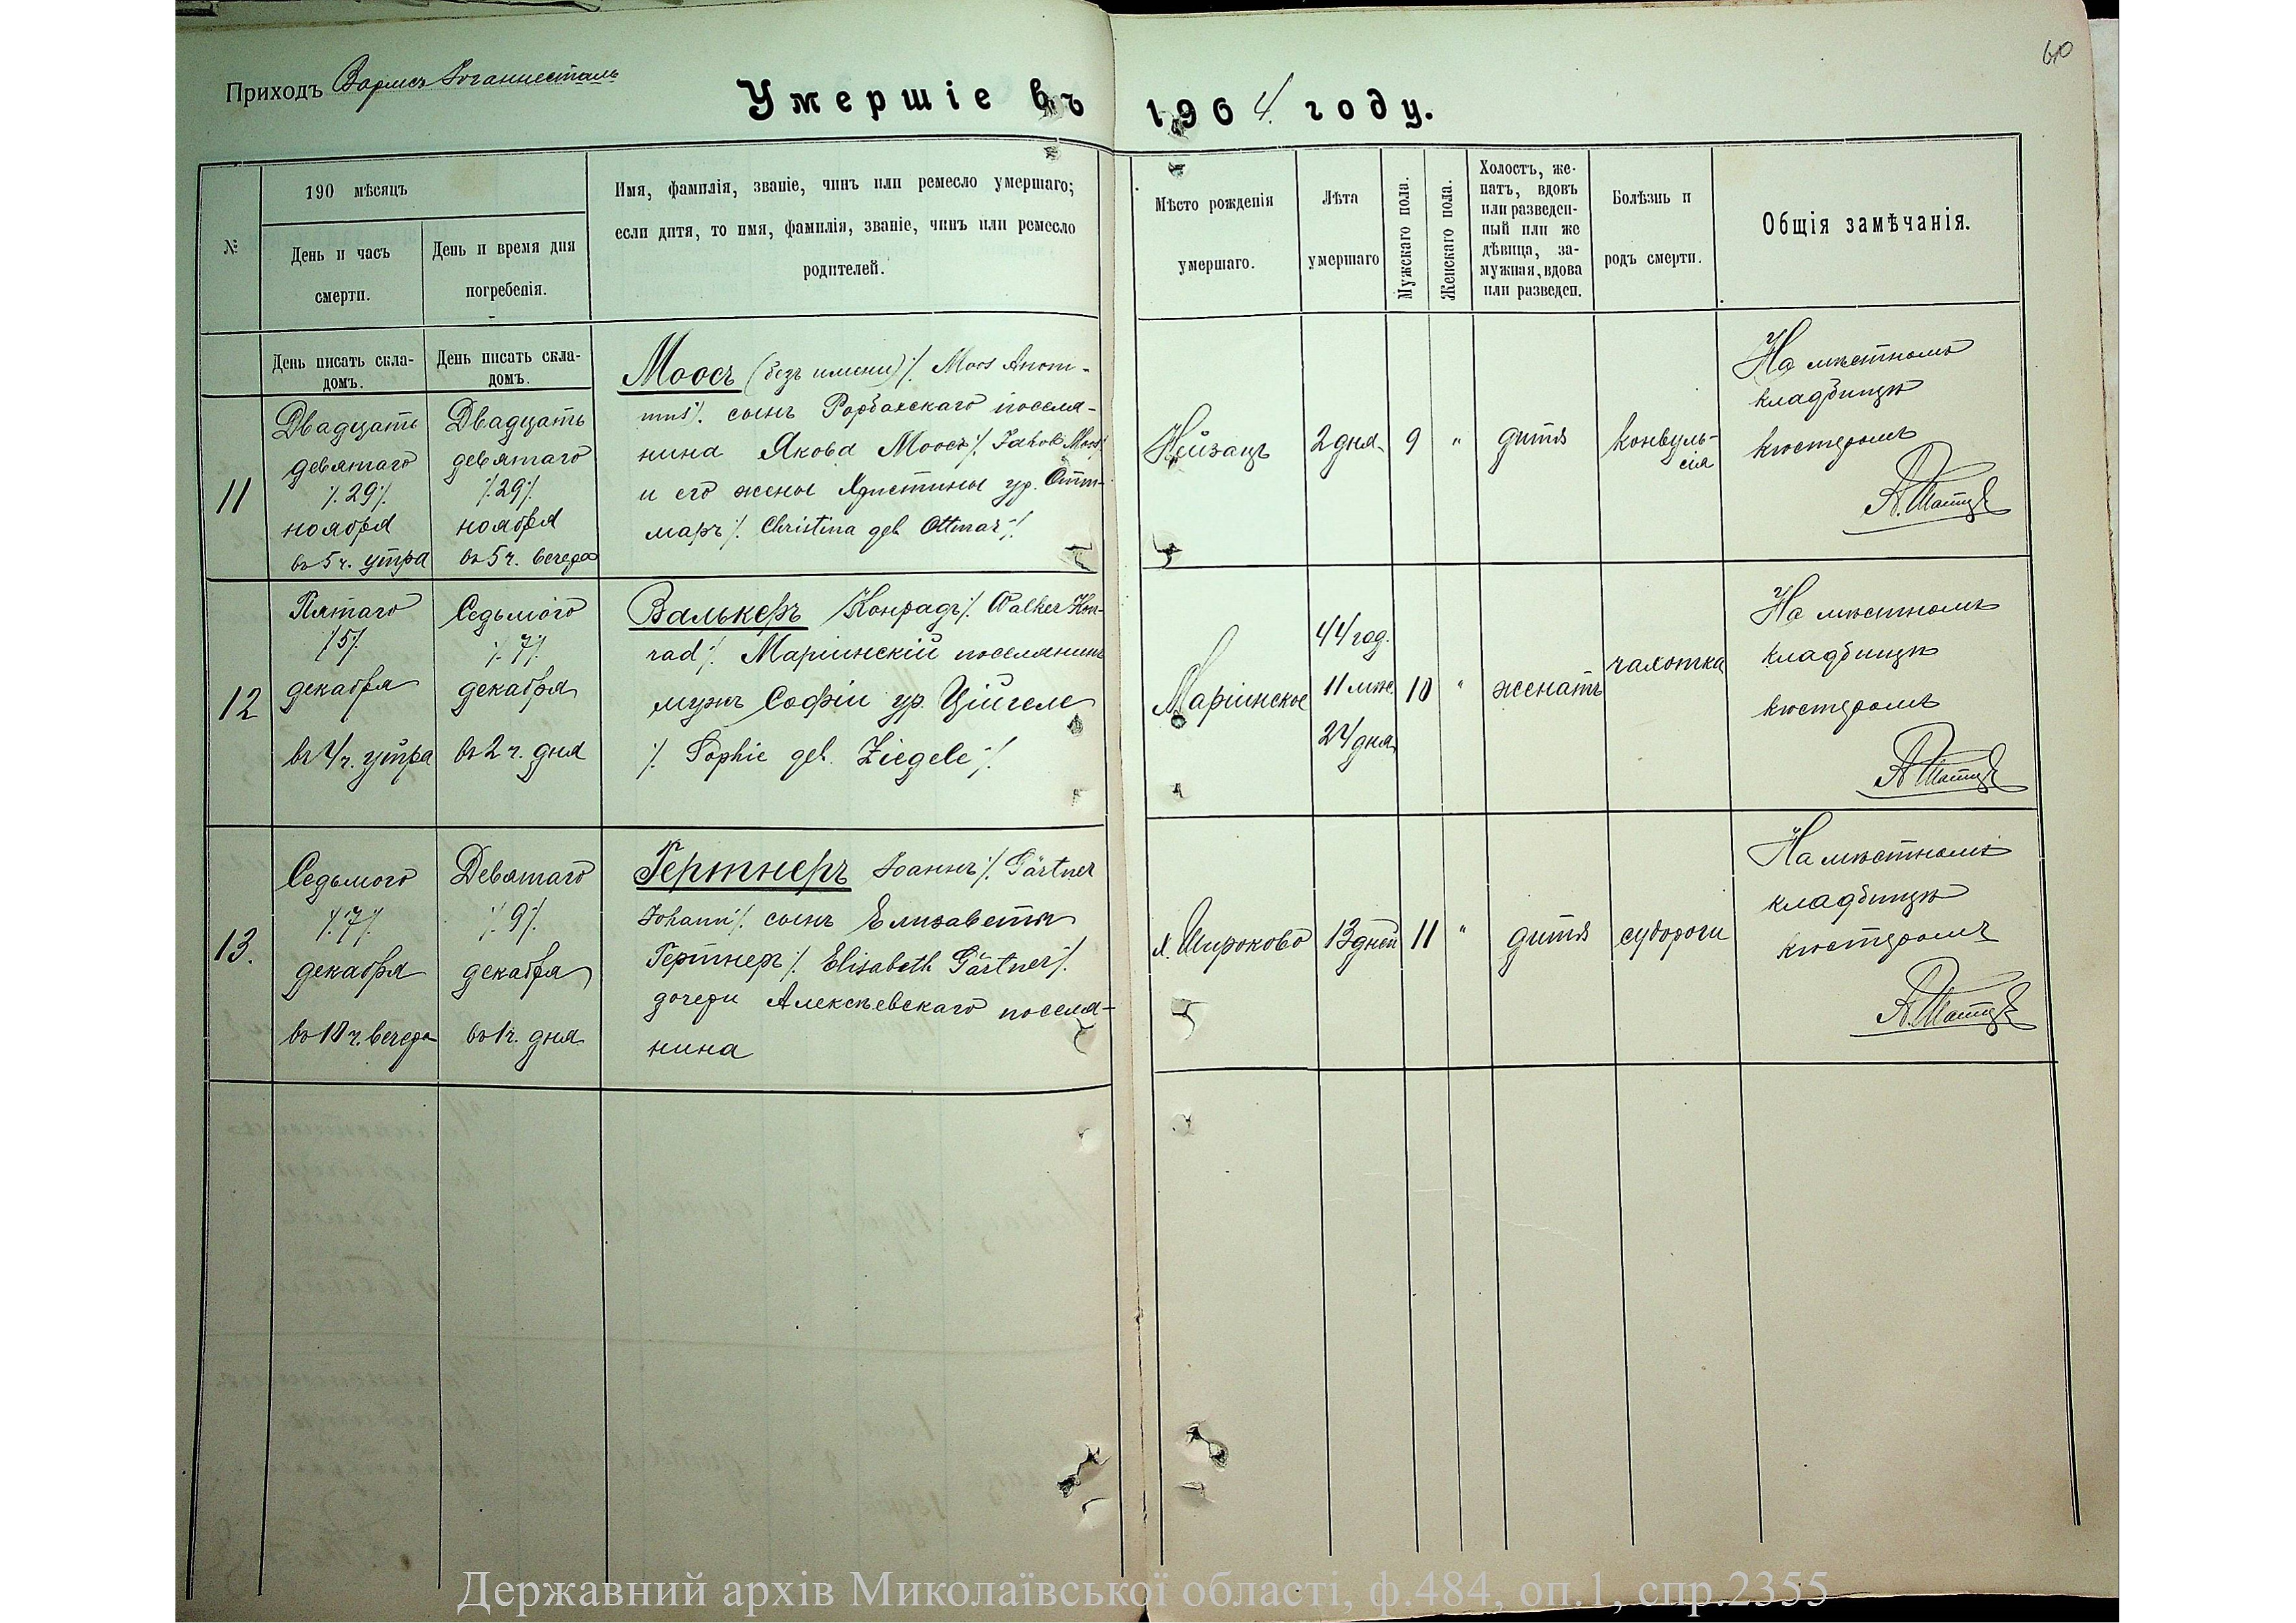 60
Приходъ Вормсъ Іоганнесталь
Умершіе въ 1904 году.
№
190 мѣсяцъ
День и часъ
смерти.
День и время дня
погребенія.
Имя, фамилія, званіе, чинъ или ремесло умершаго;
если дитя, то имя, фамилія, званіе, чинъ или ремесло
родителей.
Мѣсто рожденія
умершаго.
Лѣта
умершаго
Мужскаго пола.
Женскаго пола.
Холостъ, же-
натъ, вдовъ
или разведен-
ный или же
дѣвица, за-
мужная, вдова
или разведен.
Болѣзнь и
родъ смерти.
Общія замѣчанія.
День писать скла-
домъ.
День писать скла-
домъ.
11
Двадцать
девятаго
/. 29 ./
ноября
въ 5 ч. утра
Двадцать
девятаго
/. 29 ./
ноября
въ 5 ч. вечера
Моосъ (безъ имени) /. Moos Anoni-
mus ./ сынъ Рорбахскаго поселя-
нина Якова Моосъ /. Jakob Moos ./
и его жены Христины ур. Отт-
маръ /. Christina geb Ottmar ./
Нейзацъ
2 дня
9
"
дитя
конвуль-
сія
На мѣстномъ
кладбищѣ
кюстеромъ
12
Пятаго
/. 5 ./
декабря
въ 4 ч. утра
Седьмого
/. 7 ./
декабря
въ 2 ч. дня
Валькеръ Конрадъ /. Walker Kon-
rad ./ Маріинскій поселянинъ
мужъ Софіи ур. Цигеле
/. Sophie geb. Ziegele ./
Маріинское
44 год.
11 мѣс.
24 дня
10
"
женатъ
чахотка
На мѣстномъ
кладбищѣ
кюстеромъ
13.
Седьмого
/. 7 ./
декабря
въ 10 ч. вечера
Девятаго
/. 9 ./
декабря
въ 1 ч. дня
Гертнеръ Іоаннъ /. Gärtner
Johann ./ сынъ Елизаветы
Гертнеръ /. Elisabeth Gärtner ./
дочери Алексѣевскаго поселя-
нина
х. Широково
13 дней
11
"
дитя
судороги
На мѣстномъ
кладбищѣ
кюстеромъ
Державний архів Миколаївської області, ф.484, оп.1, спр.2355